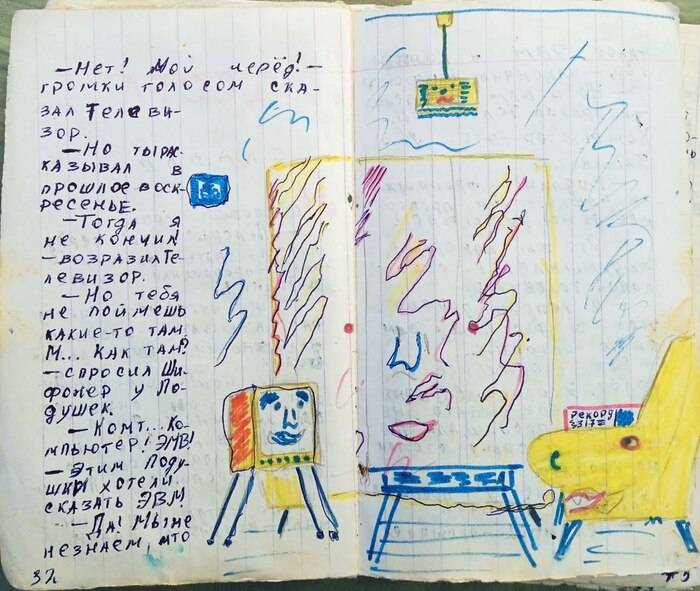 —Нет! Мой черёд!—
громки голосом ска-
зал Телеви-
зор.
—Но ты рас-
казывал в
прошлое воск-
ресенье.
—Тогда я
не кончил
—возразил те-
левизор.
—Но тебя
не поймёшь
какие-то там
М... как там?
—спросил Ши-
фонер у По-
душек.
—Комт... Ко-
мпьютер! ЭМВ!
—Этим поду-
шки хотели
сказать ЭВМ
—Да! Мы не
незнаем, что
32
рекорд
331